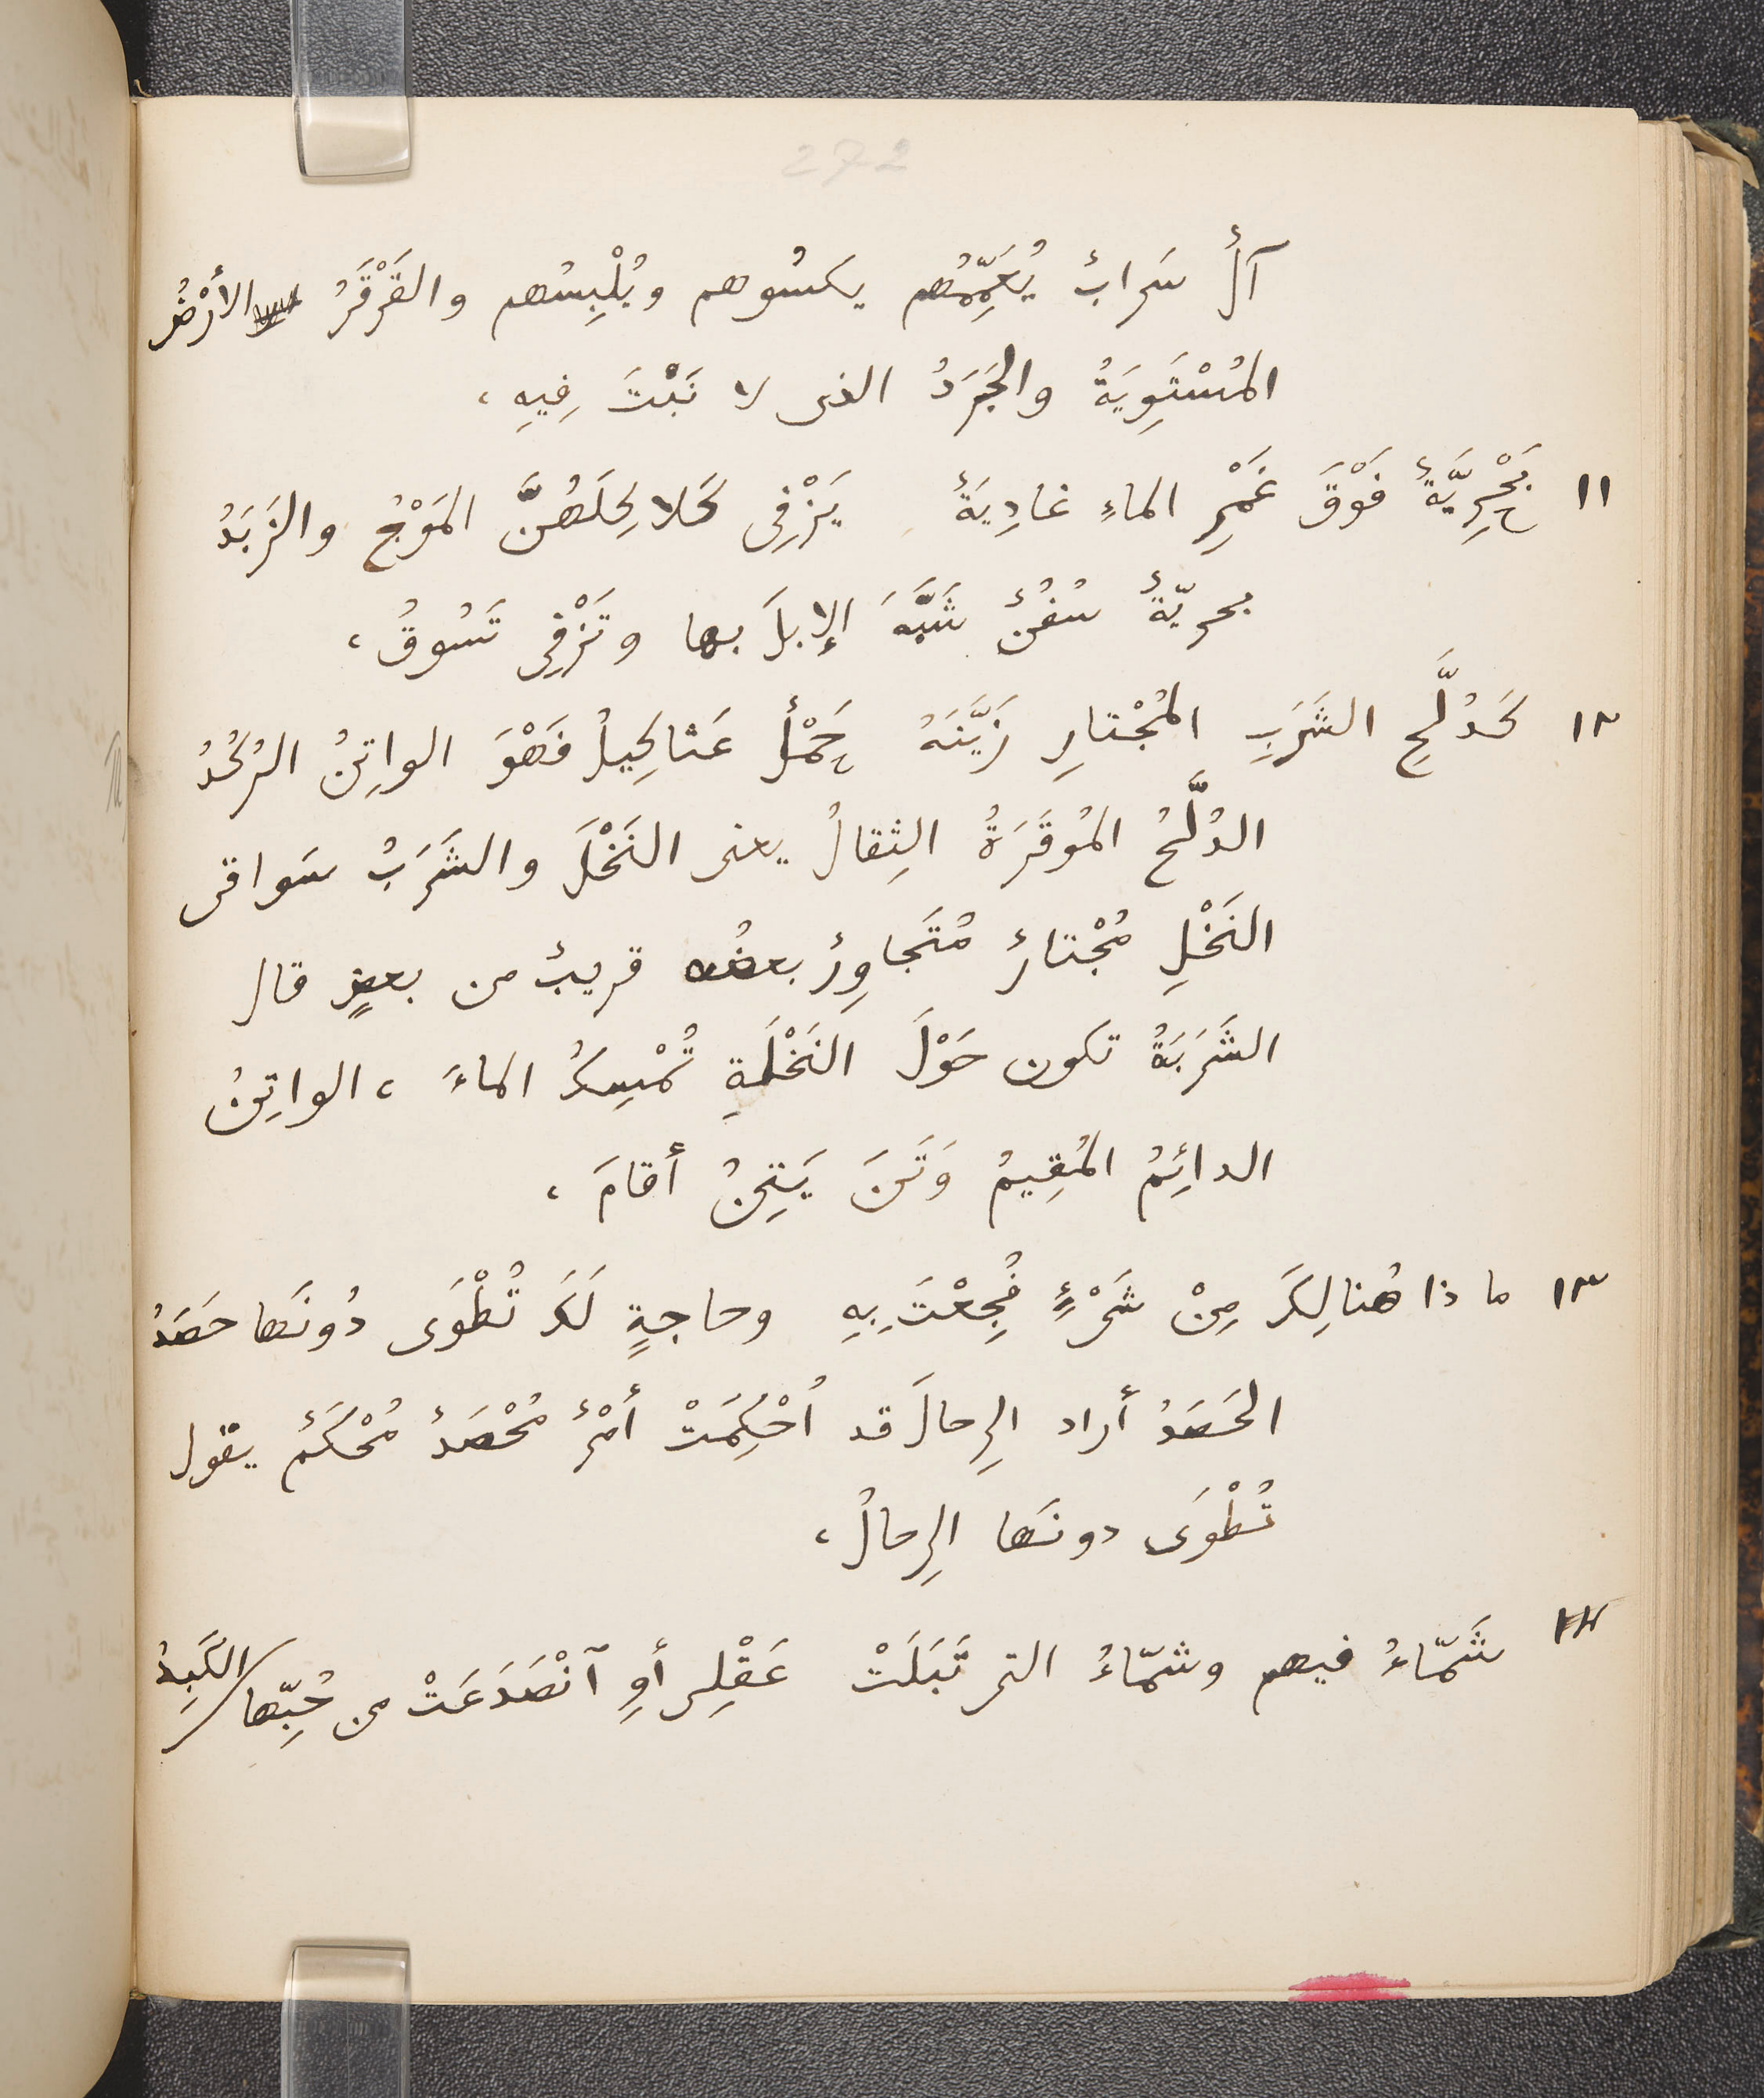 272
آلٌ سَرابٌ يُعَمِّمُهم يكسُوهم ويُلْبِسُهم والقَرْقَرُ الأَرْضُ
المُسْتَوِيَةُ والجَرَدُ الذى لا نَبْتَ فِيهِ ،
١١ بَحْرِيَّةٌ فَوْقَ غَمْرِ الماءِ غادِيَةٌ يَزْفِى كَلاكِلَهُنَّ المَوْجُ والزَبَدُ
بحريّةٌ سُفُنٌ شَبَّهَ الإبلَ بها وتَزْفِى تَسُوقُ ،
١٢ كَدُلَّحِ الشَرَبِ المُجْتارِ زَيَّنَهُ حَمْلٌ عَثاكِيلُ فَهْوَ الواتِنُ الرُكُدُ
الدُلَّحُ المُوقَرَةُ الثِقالُ يعنى النَخْلَ والشَرَبُ سَواقى
النَخْلِ مُجْتارٌ مُتَجاوِرٌ بعضُه قريبٌ من بعضٍ قال
الشَرَبَةُ تكون حَوْلَ النَخْلَةِ تُمْسِكُ الماءَ ، الواتِنُ
الدائِمُ المُقِيمُ وَتَنَ يَتِنُ أقامَ ،
١٣ ما ذا هُنالِكَ مِنْ شَىْءٍ فُجِعْتَ بِهِ وحاجةٍ لَكَ تُطْوَى دُونَها حَصَدُ
الحَصَدُ أراد الرِحالَ قد اُحْكِمَتْ أمْرٌ مُحْصَدٌ مُحْكَمٌ يقول
تُطْوَى دونَها الرِحالُ ،
شَمّاءُ فيهم وشمّاءُ التى تَبَلَتْ عَقْلِى أوِ ٱنْصَدَعَتْ من حُبِّها الكَبِدُ